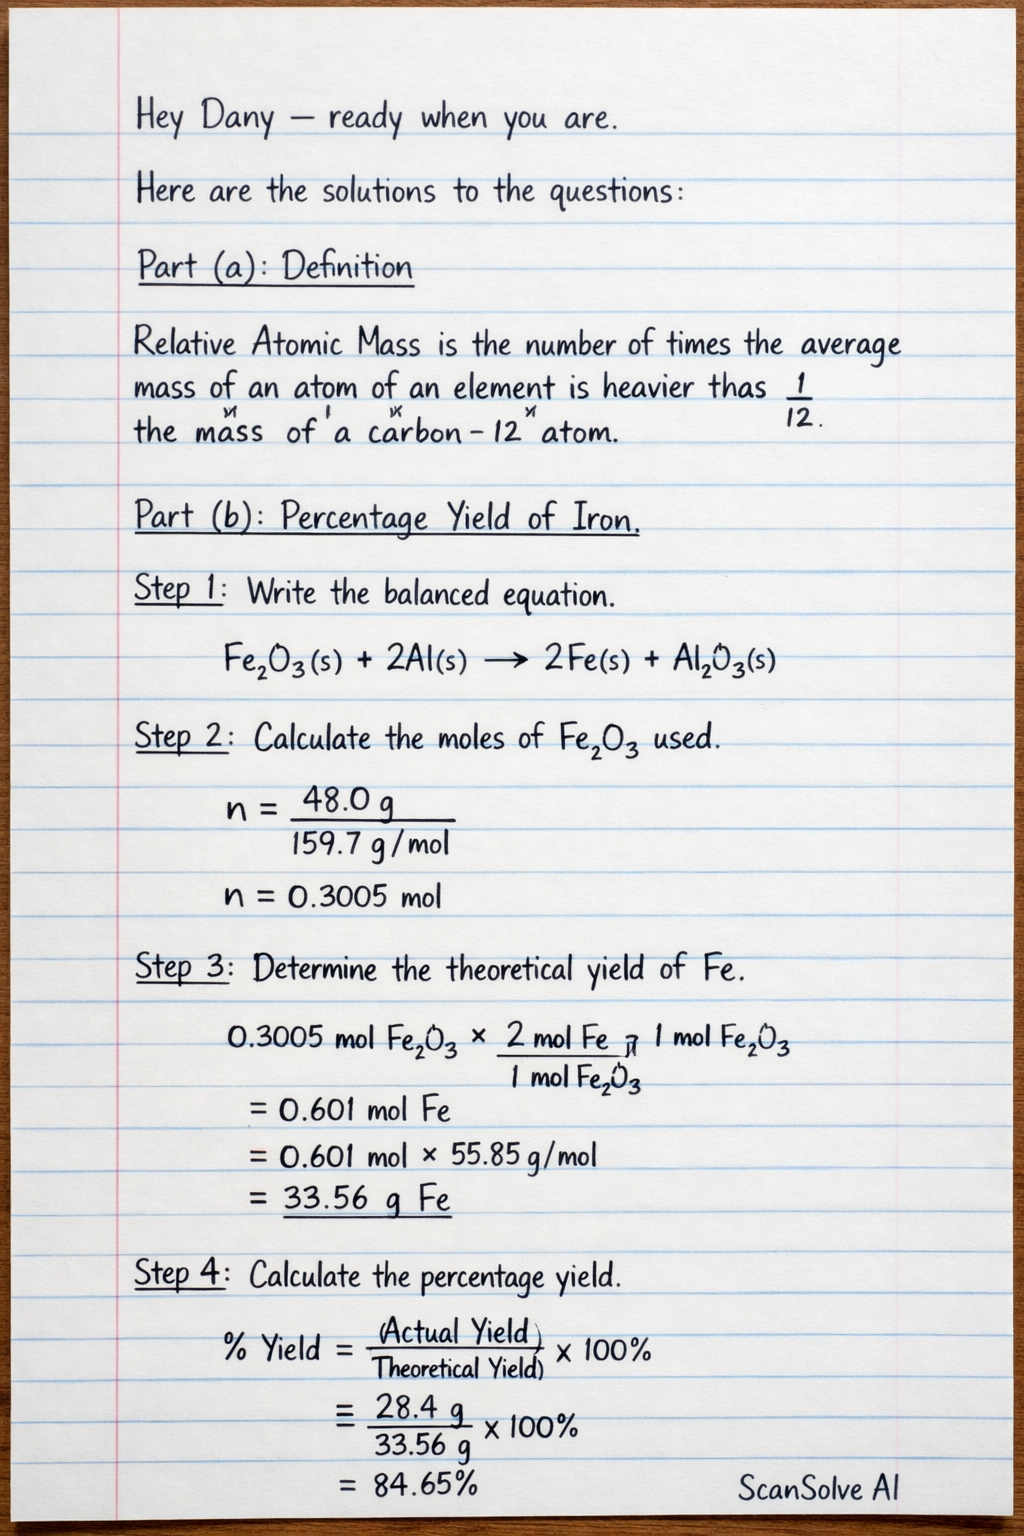 Hey Dany – ready when you are.
Here are the solutions to the questions:
Part (a): Definition
Relative Atomic Mass is the number of times the average
mass of an atom of an element is heavier thas 1/12.
the mass of a carbon-12 atom.
Part (b): Percentage Yield of Iron.
Step 1: Write the balanced equation.
Fe₂O₃(s) + 2Al(s) → 2Fe(s) + Al₂O₃(s)
Step 2: Calculate the moles of Fe₂O₃ used.
n = 48.0 g
159.7 g/mol
n = 0.3005 mol
Step 3: Determine the theoretical yield of Fe.
0.3005 mol Fe₂O₃ × 2 mol Fe 1 mol Fe₂O₃
1 mol Fe₂O₃
= 0.601 mol Fe
= 0.601 mol × 55.85 g/mol
= 33.56 g Fe
Step 4: Calculate the percentage yield.
% Yield = (Actual Yield) × 100%
Theoretical Yield)
= 28.4 g × 100%
33.56 g
= 84.65%
ScanSolve AI